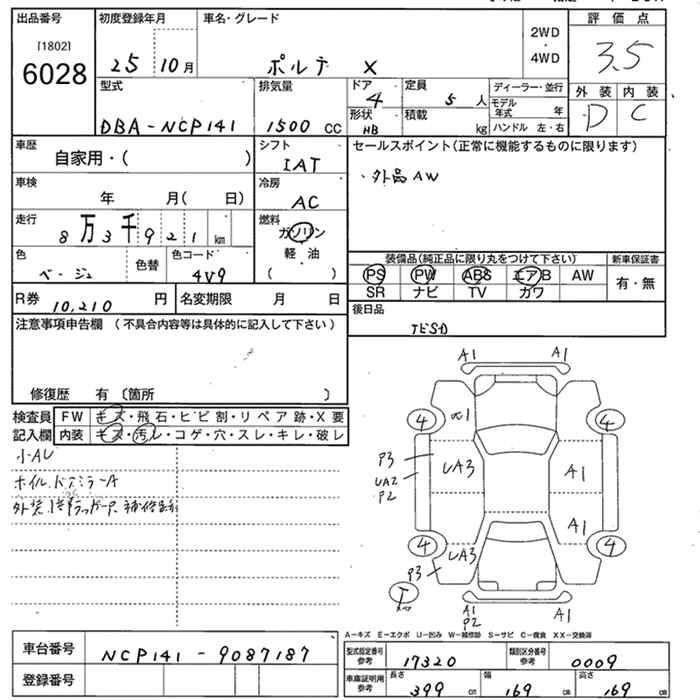 出品番号
[1802]
6028
初度登録年月
25 10月
車名・グレード
ポルテ X
2WD
・
4WD
評価点
3.5
外装 内装
D C
型式
DBA-NCP141
排気量
1500 CC
ドア
4
形状
HB
定員
5 人
積載
kg
ディーラー・並行
モデル年式 年
ハンドル 左・右
車歴
自家用・( )
シフト
IAT
セールスポイント(正常に機能するものに限ります)
・外品AW
車検
年 月( 日)
冷房
AC
走行
8万3千921 km
燃料
ガソリン
・
軽油
( )
色
ベージュ
色替
色コード
4V9
装備品(純正品に限り丸をつけて下さい)
PS PW ABS エアB AW
SR ナビ TV ガワ
新車保証書
有・無
R券
10,210 円
名変期限 月 日
後日品
注意事項申告欄 (不具合内容等は具体的に記入して下さい)
修復歴 有 〔箇所 〕
検査員
記入欄
FW キズ・飛石・ヒビ割・リペア跡・X要
内装 キズ・汚レ・コゲ・穴・スレ・キレ・破レ
小AU
ホイル、ドアミラーA
A1 A1
4 α1 4
P3
UA2
P2
UA3 A1
A1
4 UA3 4
P3
T
A1
P2
A1
A-キズ E-エクボ U-凹み W-補修跡 S-サビ C-腐食 XX-交換済
車台番号
NCP141-9087187
登録番号
型式指定番号
参考
17320
類別区分番号
参考
0009
車庫証明用
参考
長さ
399 cm
幅
169 cm
高さ
169 cm